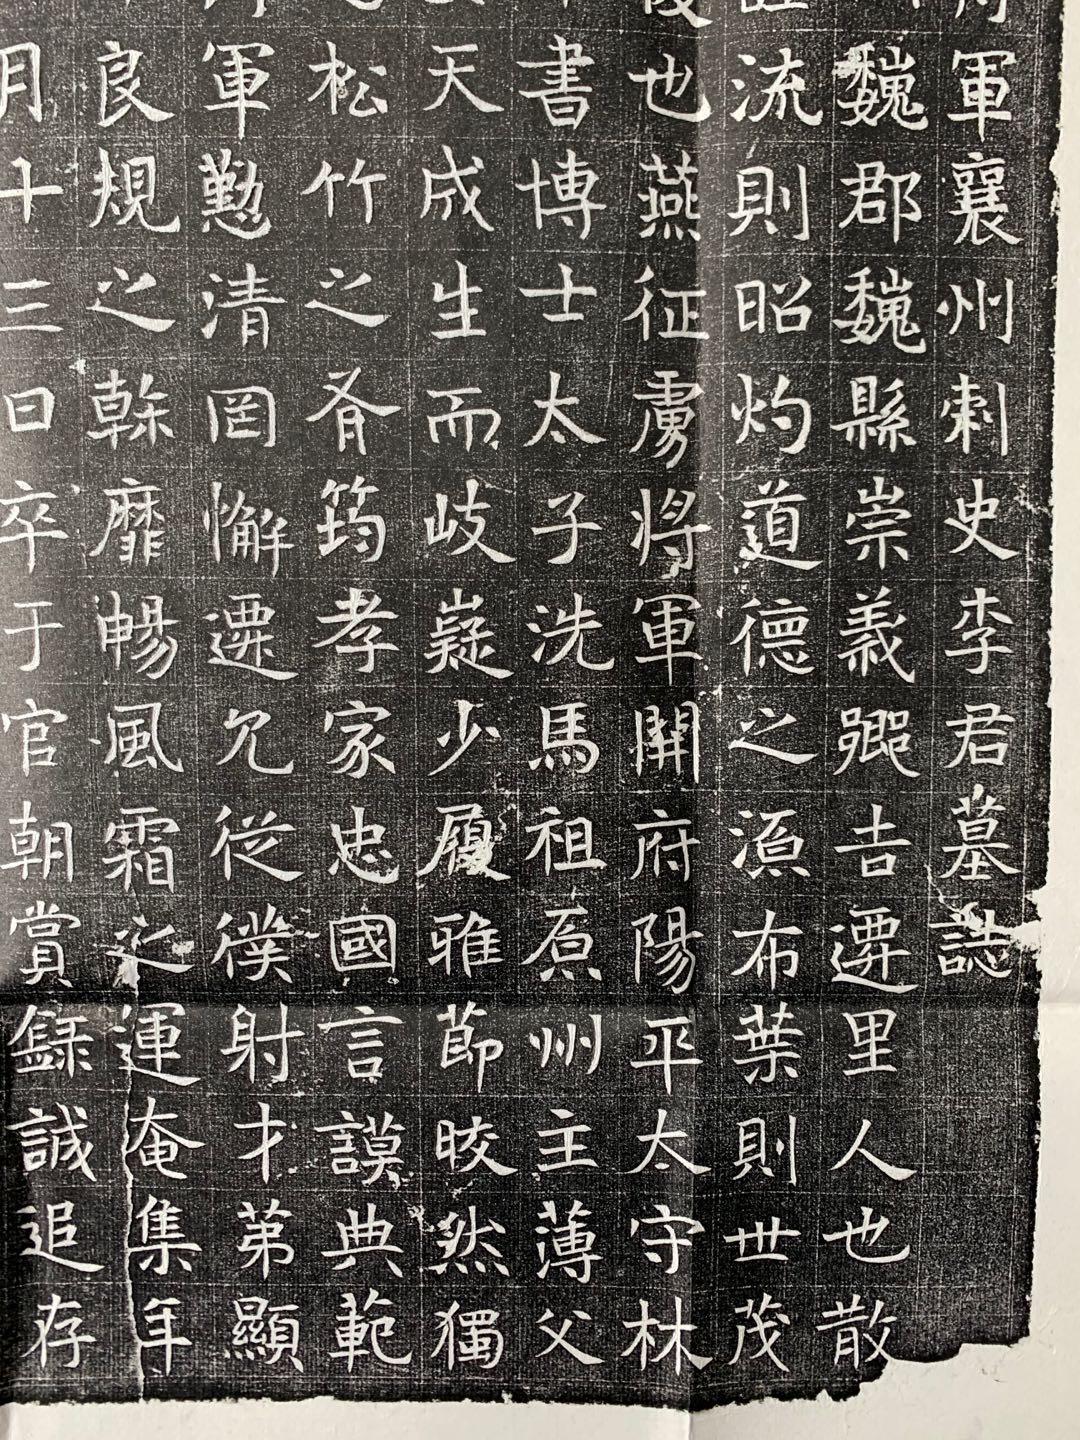 軍襄州刺史李君墓誌
魏郡魏縣崇義鄉吉遷里人也散
流則昭灼道德之源布葉則世茂
也燕征虜將軍開府陽平太守林
書博士太子洗馬祖原州主薄父
天成生而岐嶷少履雅節晈然獨
松竹之筠孝家忠國言謨典範
軍懃清罔懈遷允從僕射才第顯
良規之幹靡暢風霜之運奄集年
月十三日卒于官朝賞録誠追存